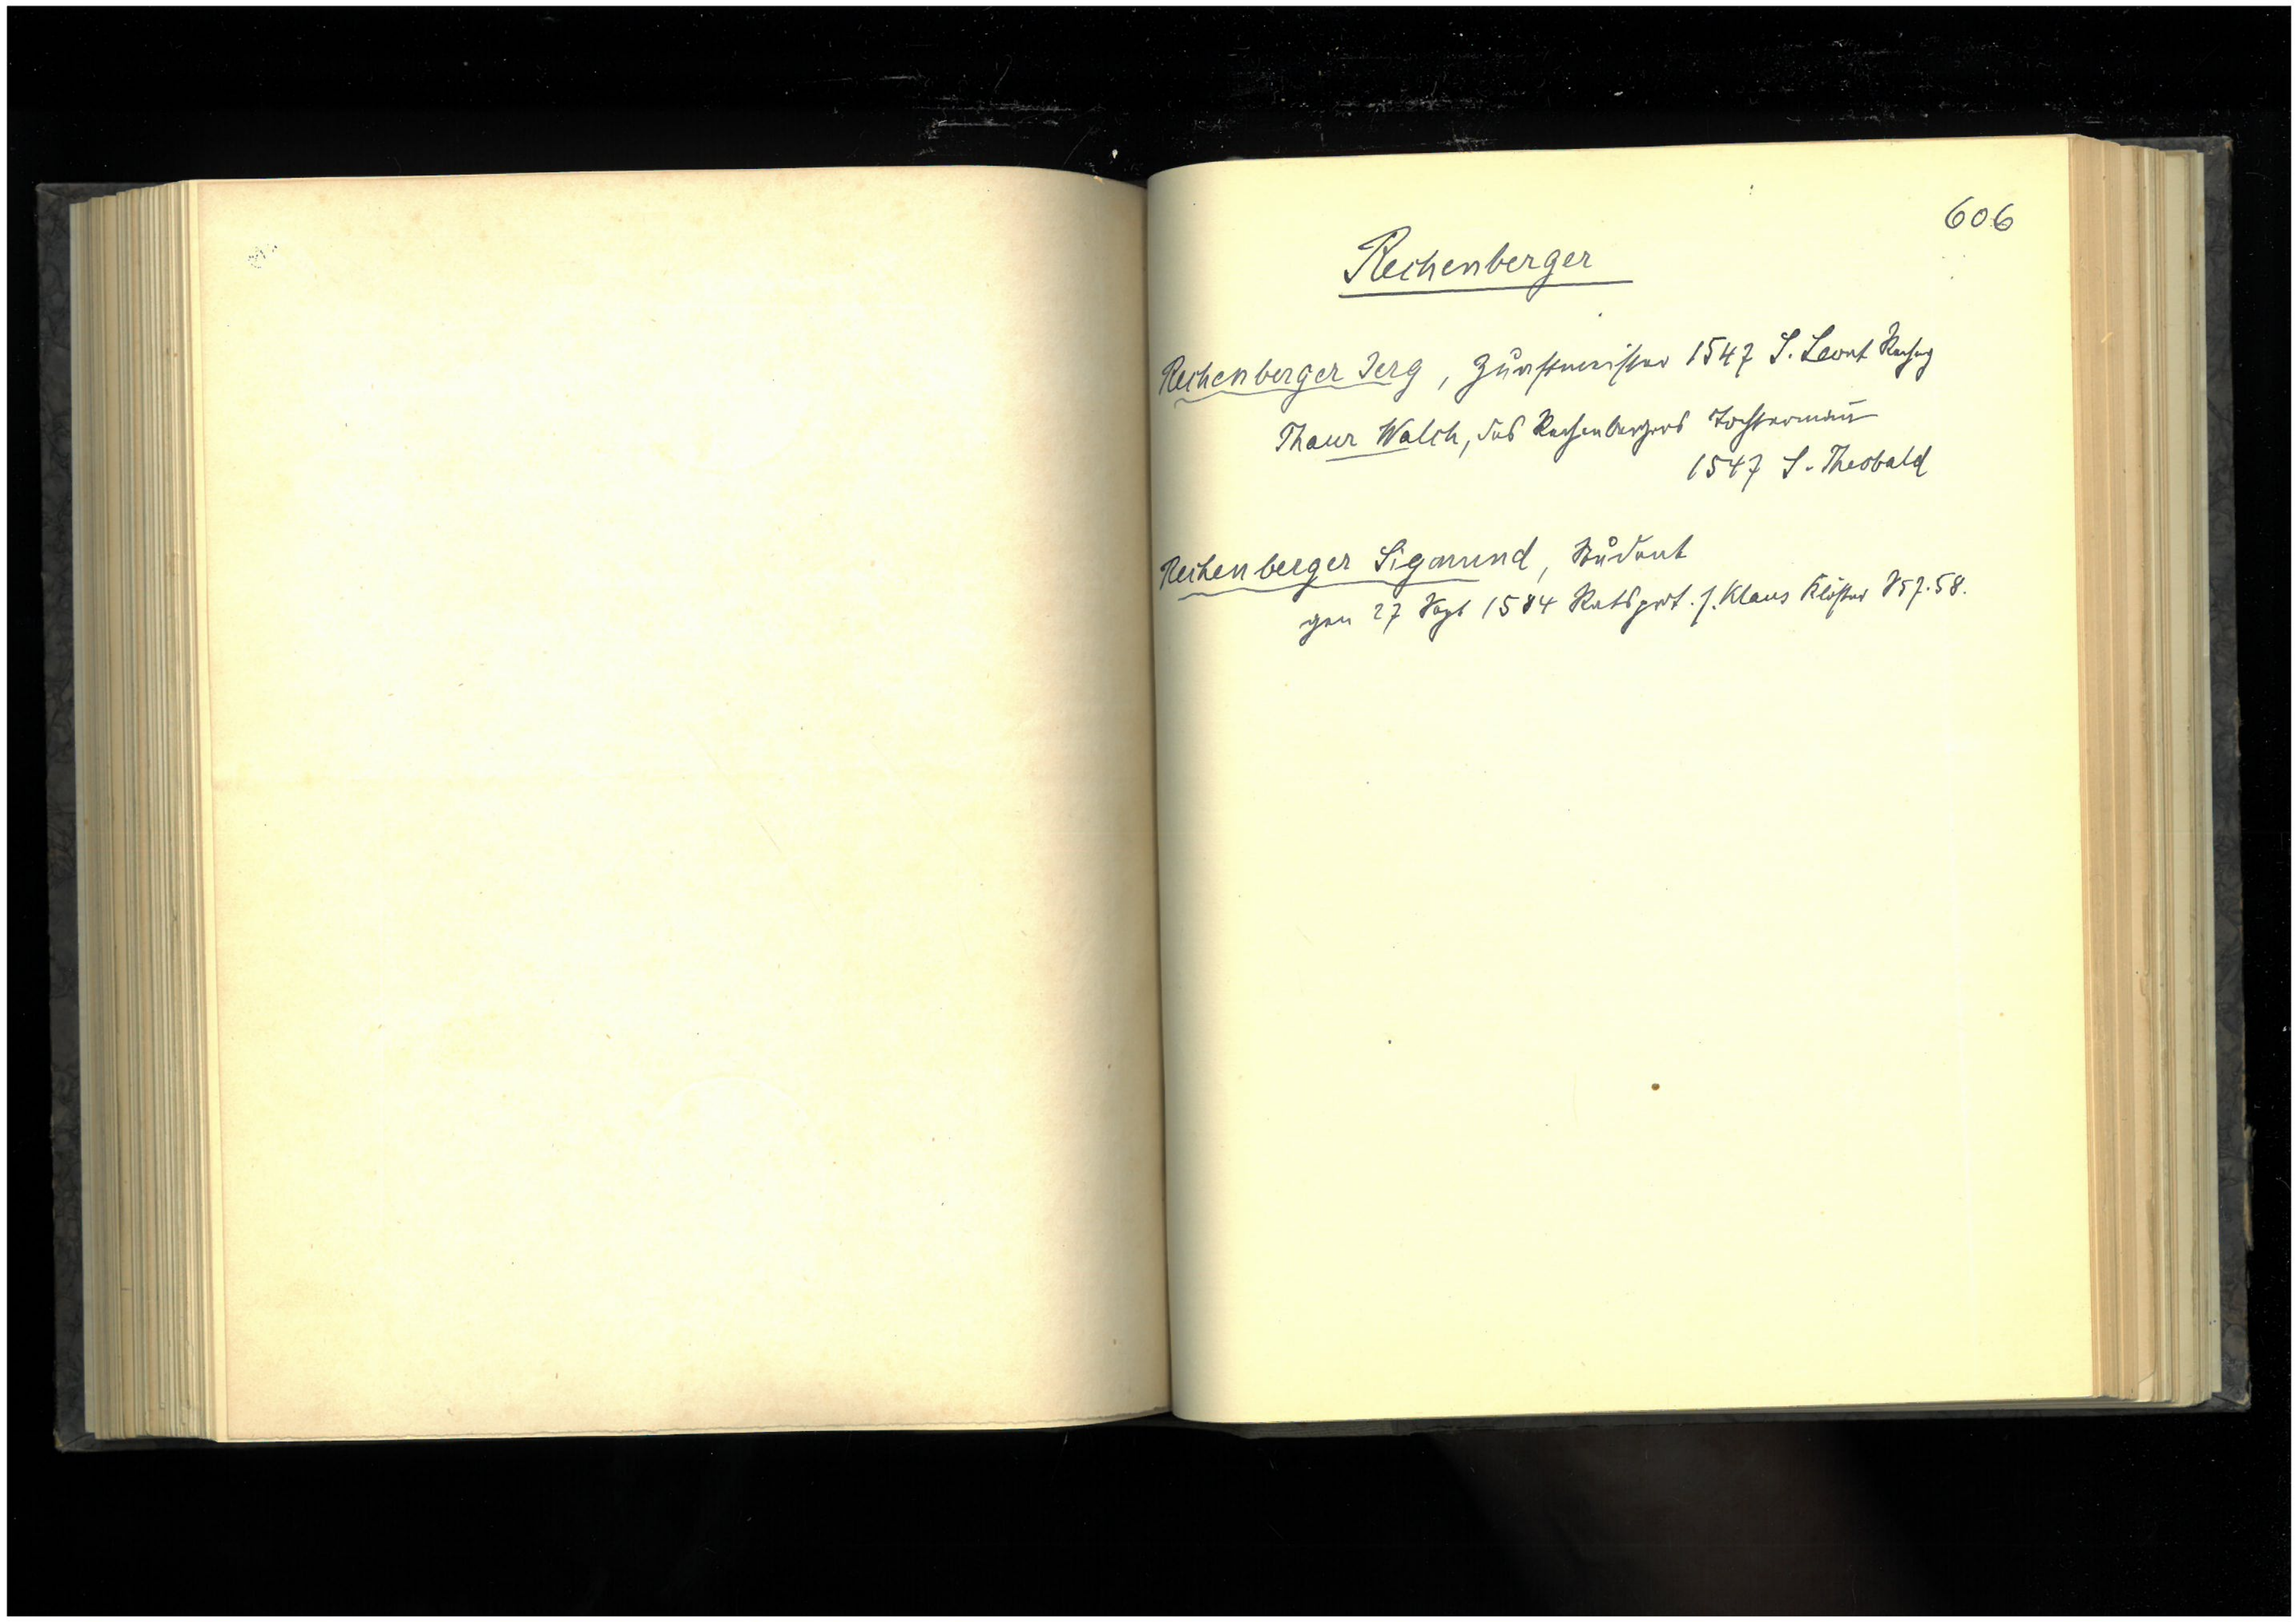 606
Rechenberger
Rechenberger Jerg, Zunftmeister 1547 S. Leont Rechng
Thaur Walch, des Rechenbergers Tochterman̄
1547 S. Theobald
Rechenberger Sigmund, Student
gen 27 Sept 1584 Ratsprot. f. Klaus Klöster